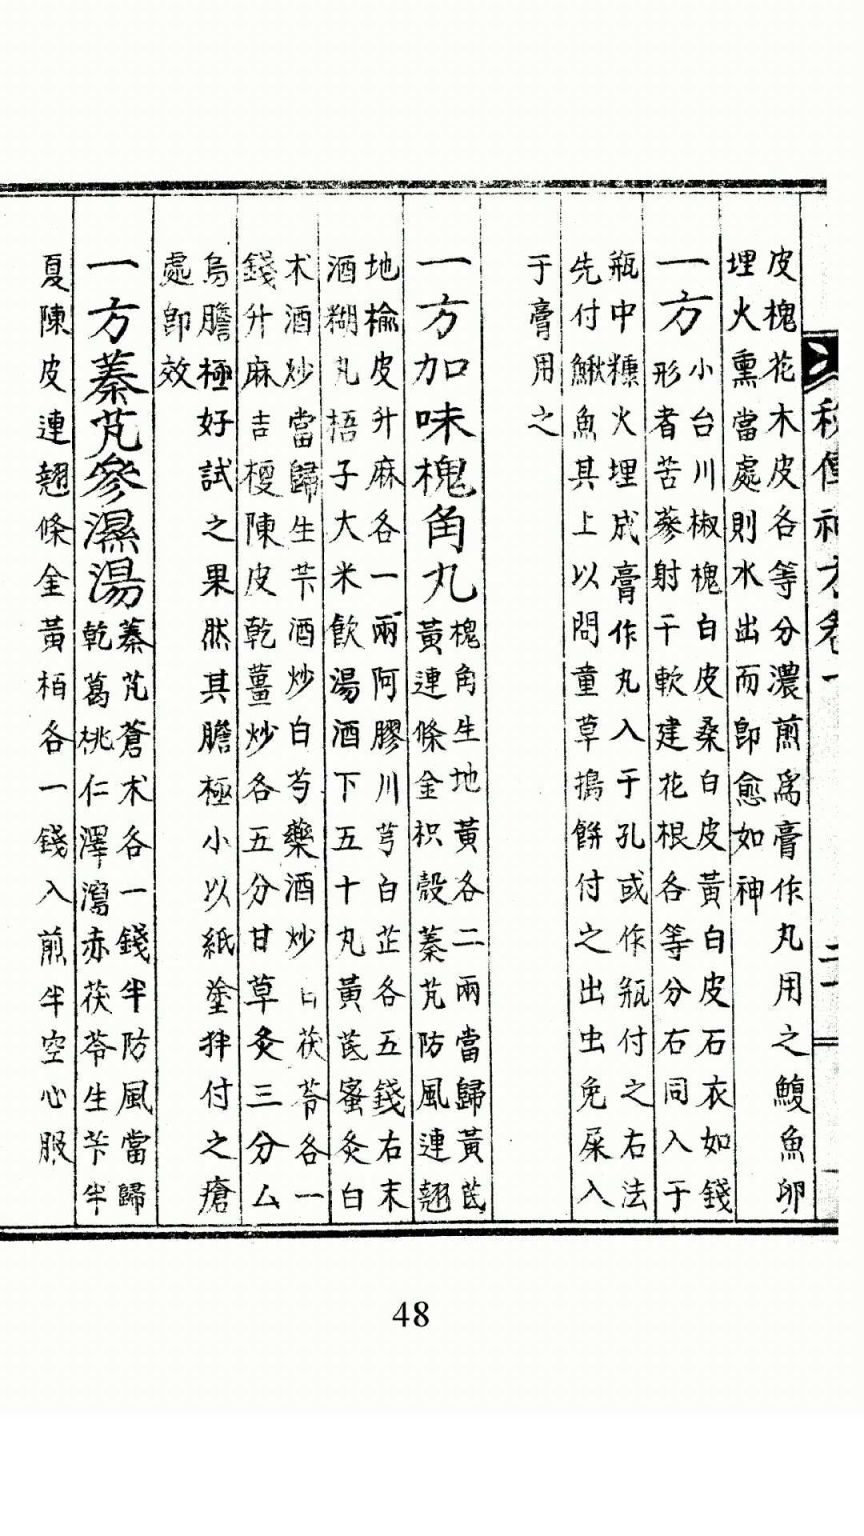 秘傳神方卷一
二十一
皮槐花木皮各等分濃煎爲膏作丸用之鰒魚卵
埋火熏當處則水出而卽愈如神
一方小台川椒槐白皮桑白皮黃白皮石衣如錢
形者苦蔘射干軟建花根各等分右同入于
瓶中糠火埋成膏作丸入于孔或作瓶付之右法
先付鰍魚其上以問童草搗餅付之出虫免屎入
于膏用之
一方加味槐角丸槐角生地黃各二兩當歸黃茋
黃連條金枳殼蓁艽防風連翹
地楡皮升麻各一兩阿膠川芎白芷各五錢右末
酒糊丸梧子大米飮湯酒下五十丸黃茋蜜灸白
术酒炒當歸生芐酒炒白芍藥酒炒白茯苓各一
錢升麻吉梗陳皮乾薑炒各五分甘草灸三分厶
烏膽極好試之果然其膽極小以紙塗拌付之瘡
處卽效
一方蓁艽參濕湯蓁艽蒼术各一錢半防風當歸
乾葛桃仁澤瀉赤茯苓生芐半
夏陳皮連翹條金黃栢各一錢入煎半空心服
48